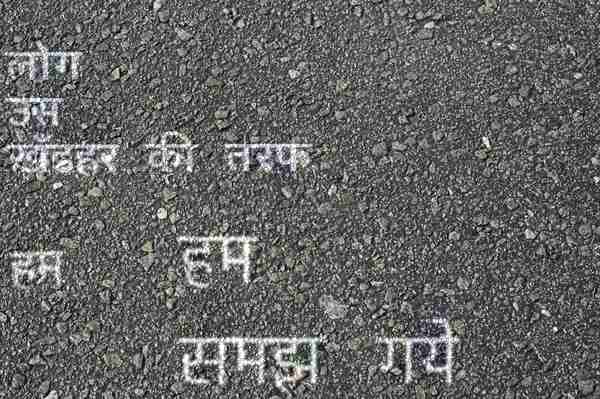 लोग
उस
खंढहर की तरफ
हम हम
समझ गये